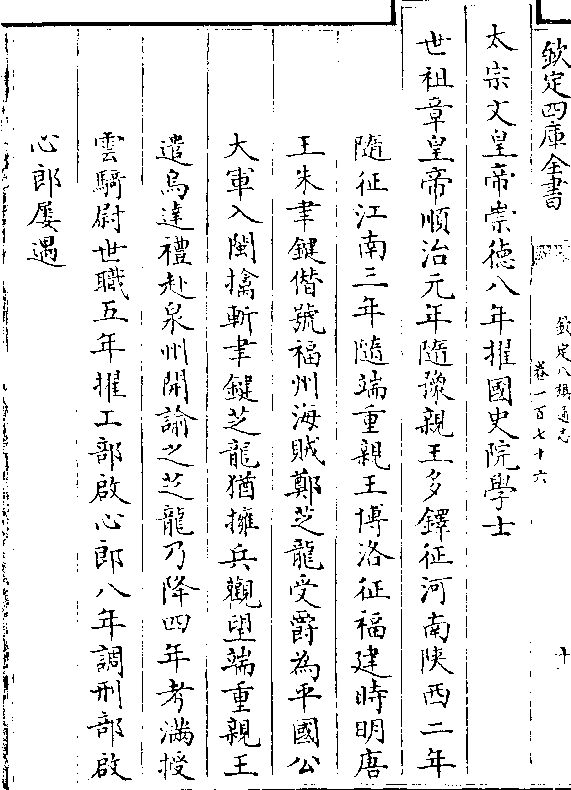 欽定四庫全書
欽定八旗通志
卷一百七十六
十
太宗文皇帝崇德八年擢國史院學士
世祖章皇帝順治元年隨豫親王多鐸征河南陝西二年
隨征江南三年隨端重親王博洛征福建時明唐
王朱聿鍵僭號福州海賊鄭芝龍受爵為平國公
大軍入閩擒斬聿鍵芝龍猶擁兵觀望端重親王
遣烏達禮赴泉州開諭之芝龍乃降四年考滿授
雲騎尉世職五年擢工部啟心郎八年調刑部啟
心郎屢遇